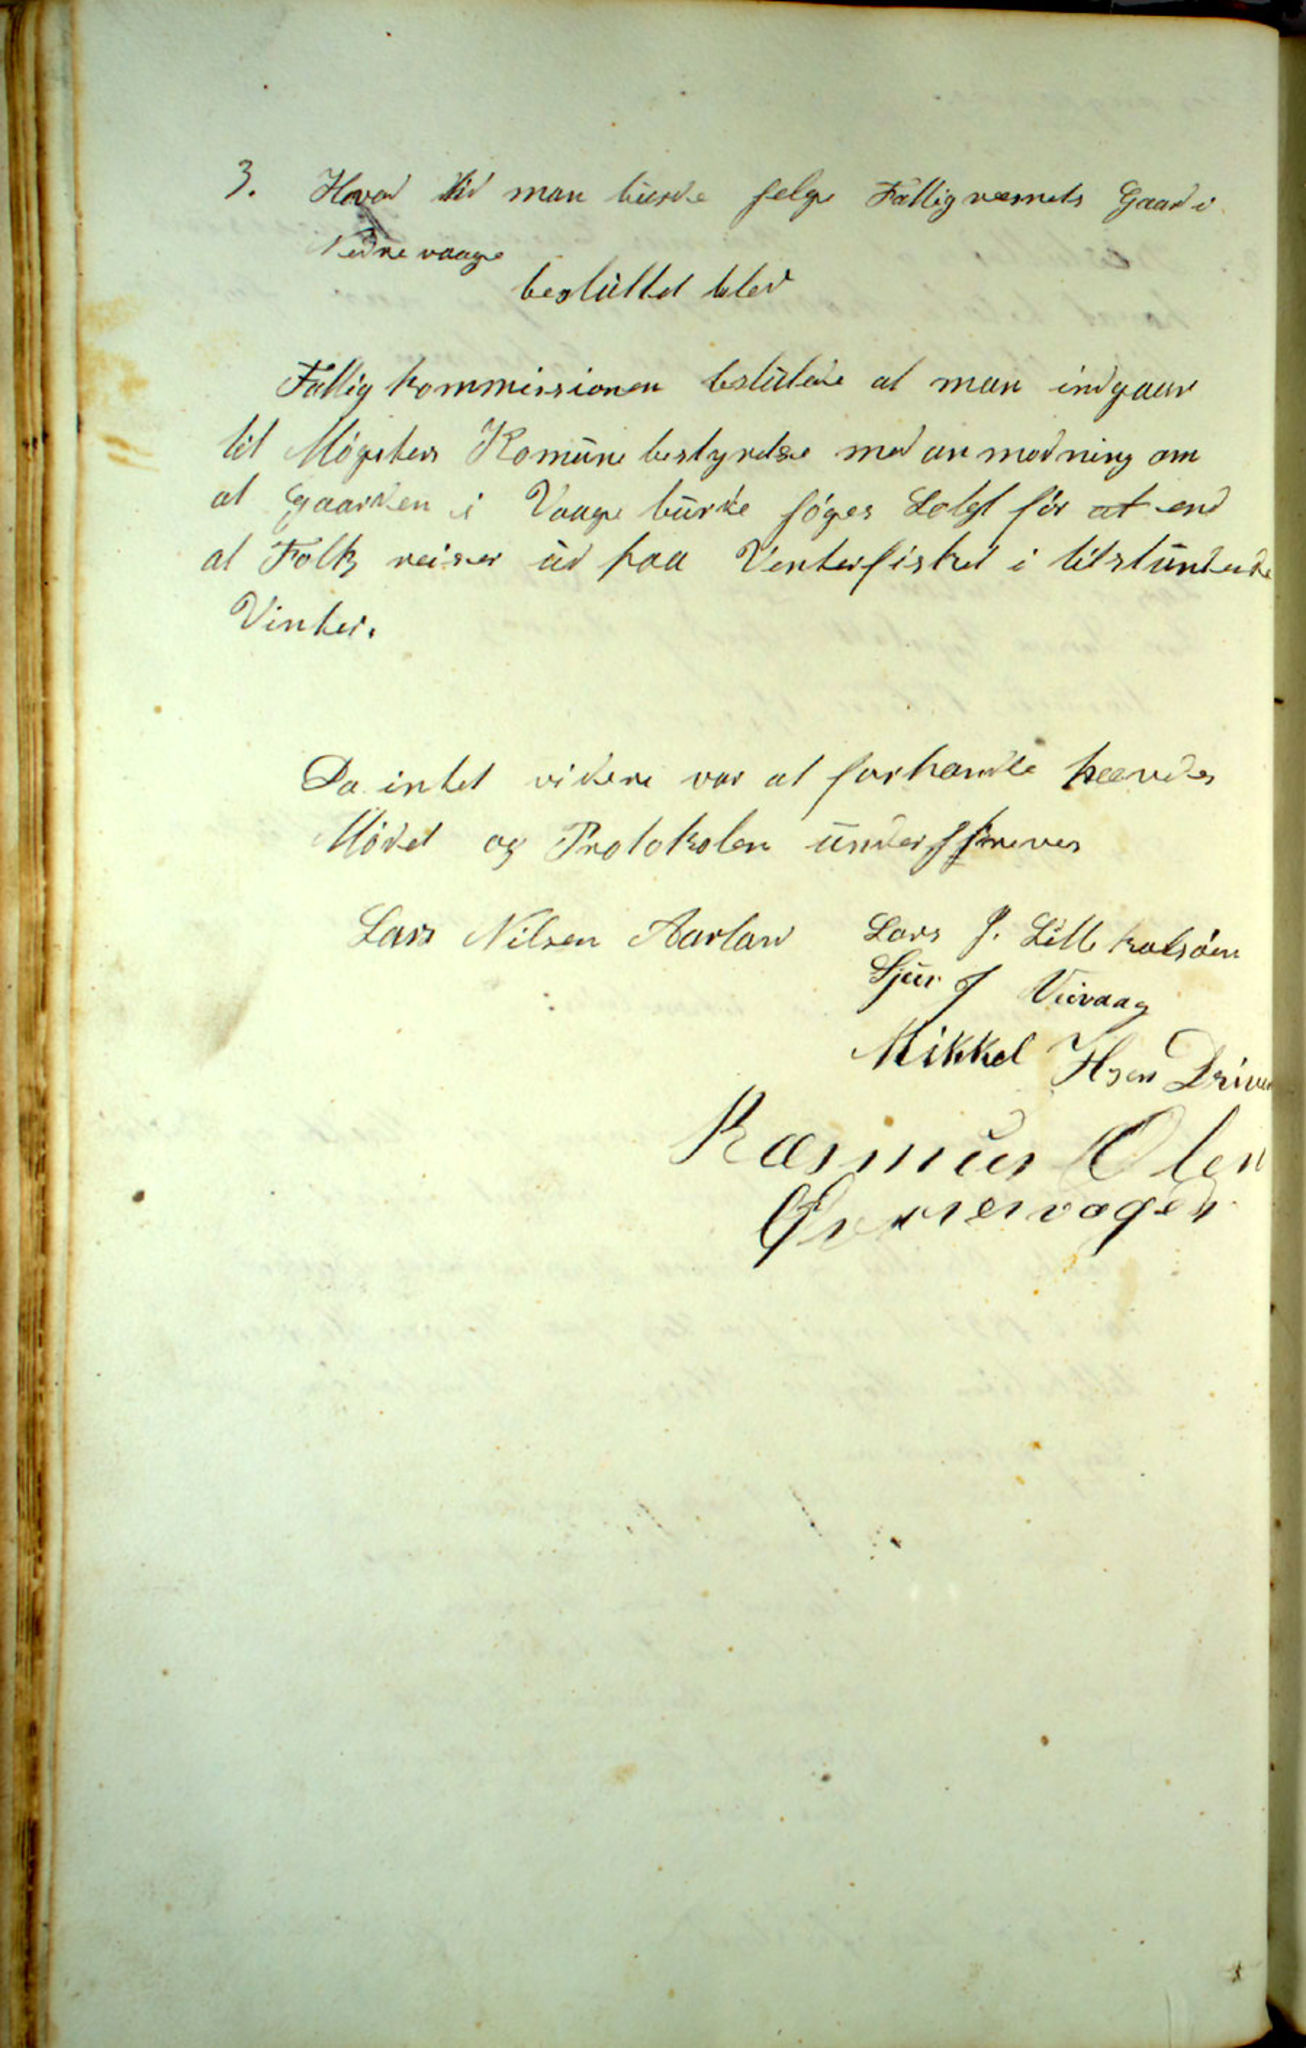 3. Hvad tid man burde selge Fattigvæsnets Gaard i
Nedre vaage
besluttet blev
Fattigkommissionen besluttede at man indgaar
til Møgsters Komunebestyrelse med anmodning om
at Gaarden i Vaage burde søges Solgt før at end
at Folk reiser ud paa Venterfisket i tilstundende
Vinter.
Da intet videre var at forhandle hævedes
Mødet og Protokolen underskreves
Lars Nilsen Aarland Lars J. Lille kalsøen
Sjur J Vivaag
Mikkel Hsen Driven
Rasmus Olsen
Øvrevaagen